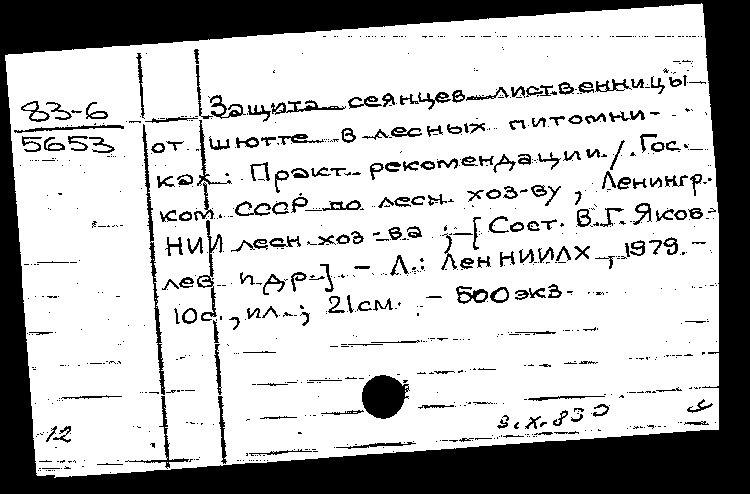 83-6
5653
Защита сеянцев лиственницы
от шютте в лесных питомни-
ках: Практ. рекомендации / Гос.
ком. СССР по лесн. хоз-ву, Ленингр.
НИИ лесн. хоз-ва ; [Сост. В.Г. Яков-
лев и др.]. - Л.: ЛенНИИЛХ, 1979. -
10с., ил.; 21см. - 500экз.
12